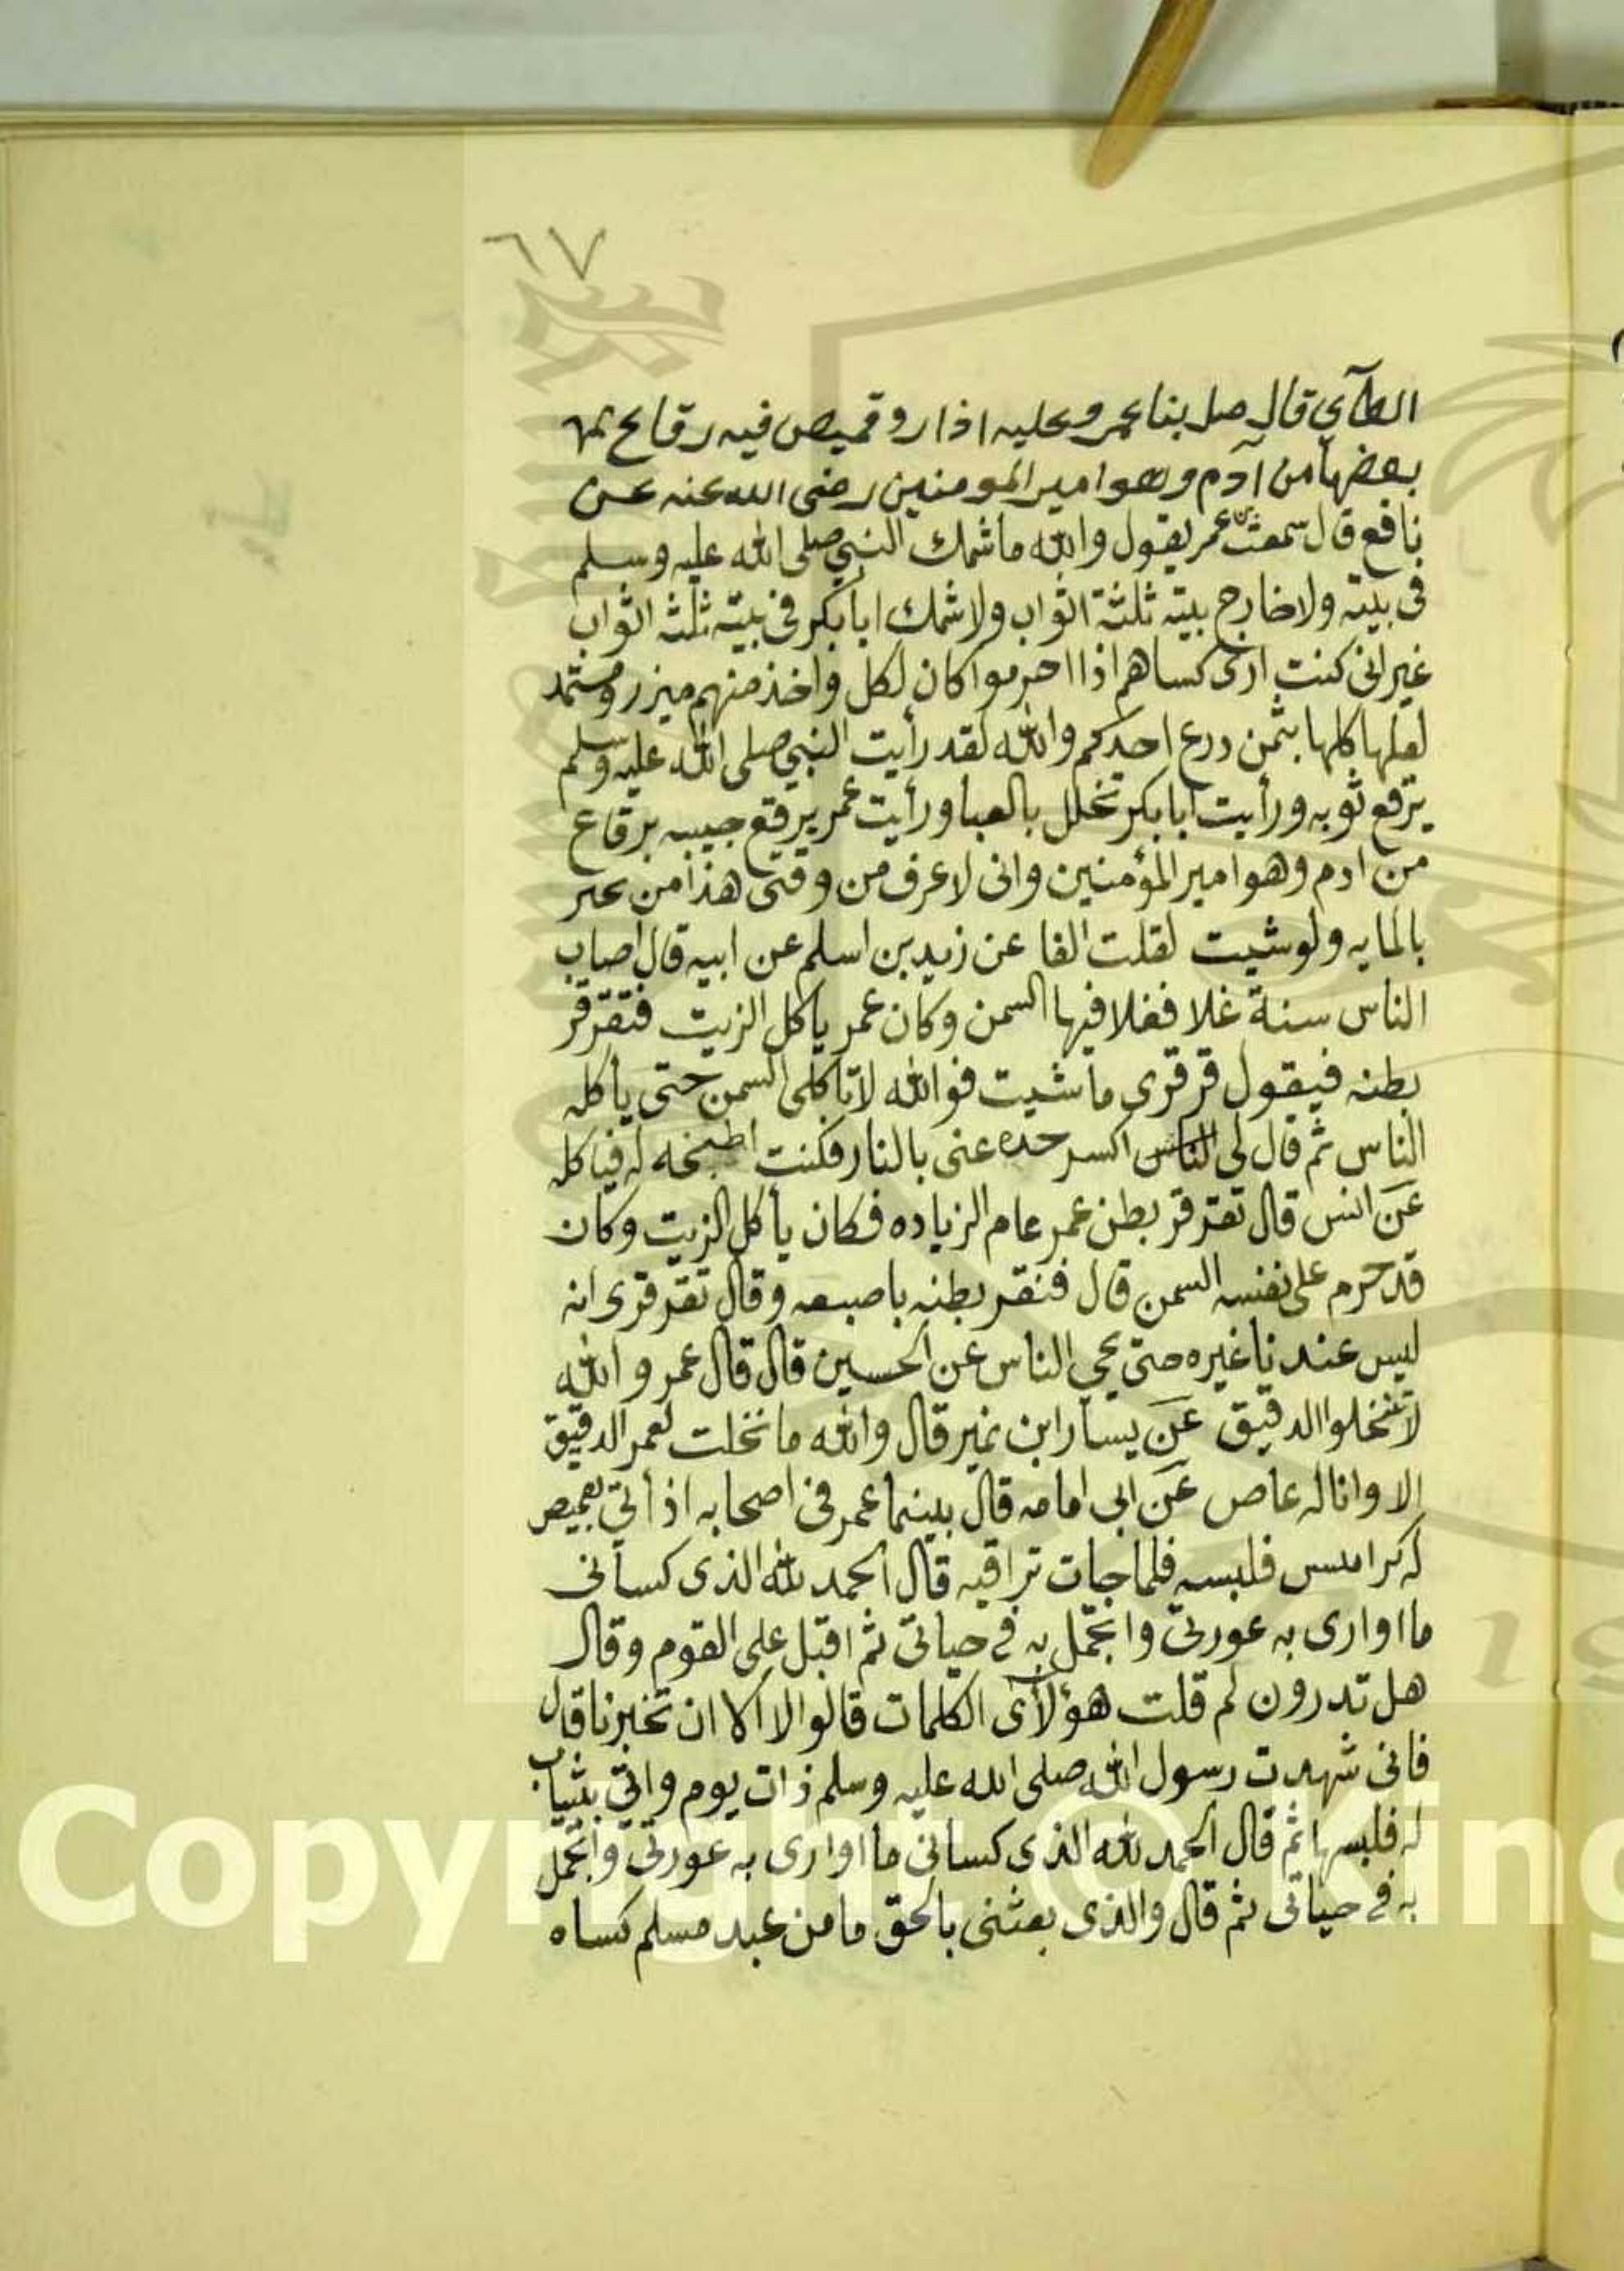 ٦٧
الطآي قال صل بنا عمر وعليه اذار وقميص فيه رقاع
بعضها من آدم وهو امير المومنين رضى الله عنه عن
نافع قال سمعت بن عمر يقول والله ما شمك النبي صلى الله عليه وسلم
فى بيته ولا خارج بيته ثلثة اثواب ولا شمك ابا بكر فى بيته ثلث اثواب
غير انى كنت ارى كساهم اذا احرموا كان لكل واخذ منهم ميزر ومشتمد
لعلها كلها بثمن درع احدكم والله لقد رأيت النبي صلى الله عليه وسلم
يرقع ثوبه ورأيت ابا بكر تخلل بالعبا ورأيت عمر يرقع جيبه برقاع
من ادم وهو امير المؤمنين وانى لاعرف من وقتى هذا من
بالمايه ولو شيت لقلت الفا عن زيد بن اسلم عن ابيه قال اصاب
الناس سنة غلا فغلا فيها السمن وكان عمر ياكل الزيت فتقرقر
بطنه فيقول قرقرى ما شيت فوالله لا تاكلى السمن حتى يأكله
الناس ثم قال لى الناس اكسر حده عنى بالنار فكنت اطبخه له فياكله
عن انس قال تقرقر بطن عمر عام الزياده فكان يأكل الزيت وكان
قد حرم على نفسه السمن قال فنقر بطنه باصبعه وقال تقرقرى انه
ليس عندنا غيره حتى يحي الناس عن الحسين قال قال عمر والله
لا تنخلوا الدقيق عن يسار ابن نمير قال والله ما نخلت لعمر الدقيق
الا وانا له عاص عن ابى امامه قال بينما عمر فى اصحابه اذ أتي بقميص
له فلبسه فلما جات تراقيه قال الحمد لله الذى كسانى
ما اوارى به عورتى واتجمل به فى حياتى ثم اقبل على القوم وقال
هل تدرون لم قلت هؤلآى الكلمات قالوا لا الا ان تخبرنا قال
فانى شهدت رسول الله صلى الله عليه وسلم ذات يوم واتي بثياب
له فلبسها ثم قال الحمد لله الذى كسانى ما اوارى به عورتى واتجمل
به فى حياتى ثم قال والذى بعثنى بالحق ما من عبد مسلم كساه
Copyright © King